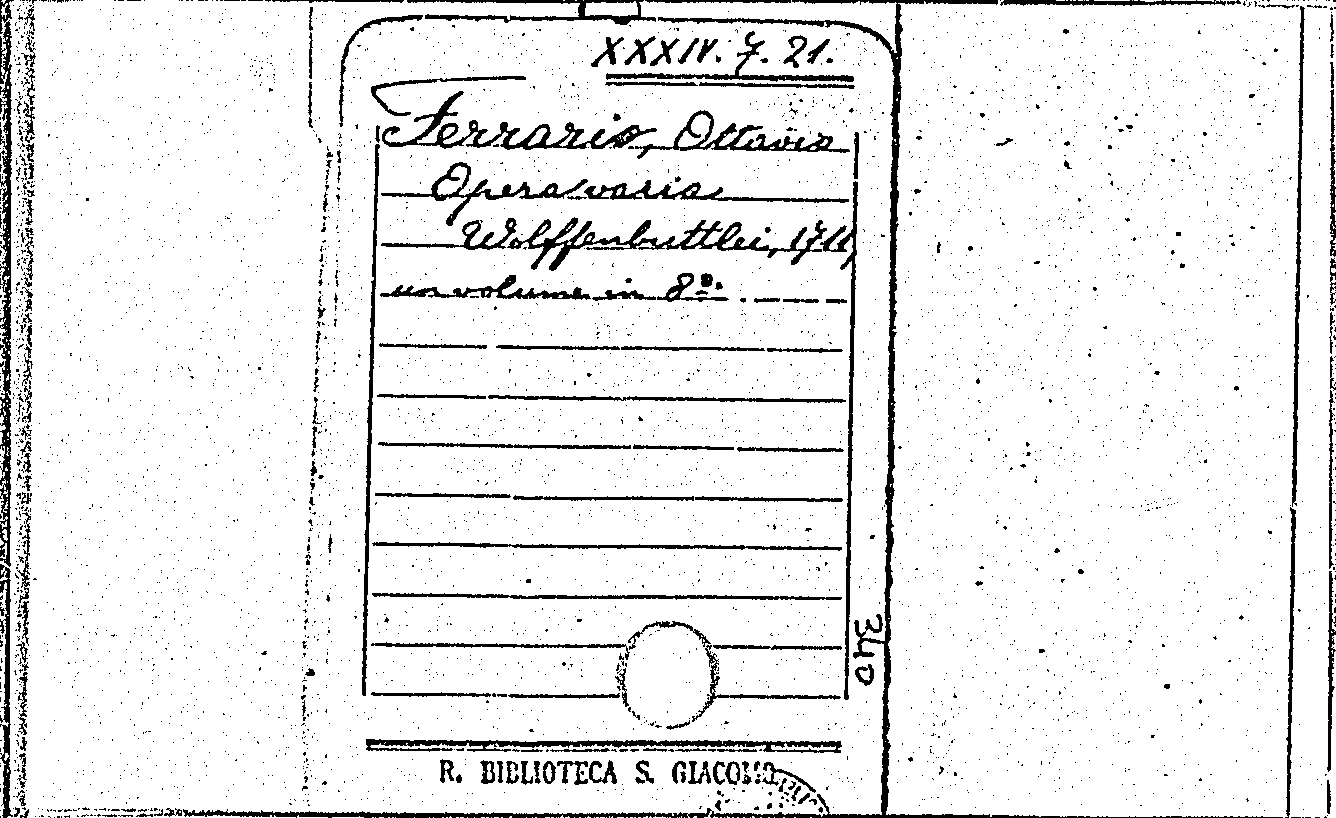 XXXIV. 7. 21.
Ferrario, Ottavio
Opera varia
Wolffenbuttlei, 1711,
un volume in 8º.
340
R. BIBLIOTECA S. GIACOMO